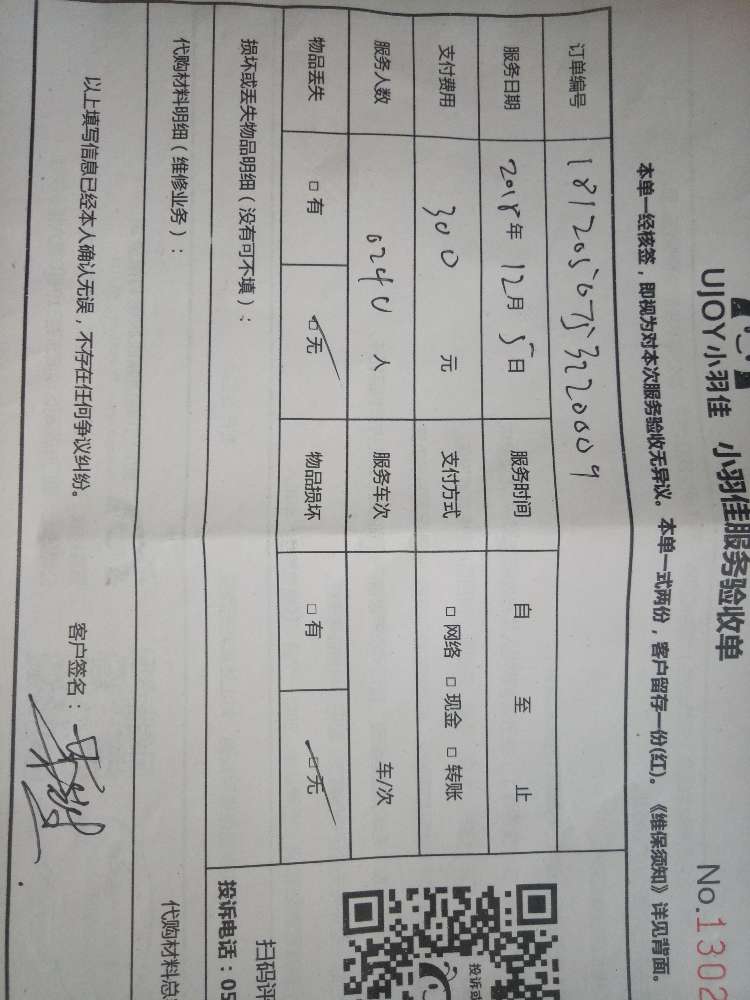 UJOY小羽佳 小羽佳服务验收单
No.1302
本单一经核签，即视为对本次服务验收无异议。本单一式两份，客户留存一份(红)。《维保须知》详见背面。
订单编号
服务日期 2018年 12月 5日 服务时间 自 至 止
支付费用 300 元 支付方式 □ 网络 □ 现金 □ 转账
服务人数 0240 人 服务车次 车/次
物品丢失 □ 有 □ 无 物品损坏 □ 有 □ 无
损坏或丢失物品明细（没有可不填）：
代购材料明细（维修业务）： 代购材料总
以上填写信息已经本人确认无误，不存在任何争议纠纷。 客户签名：
投诉或
扫码评
投诉电话：05